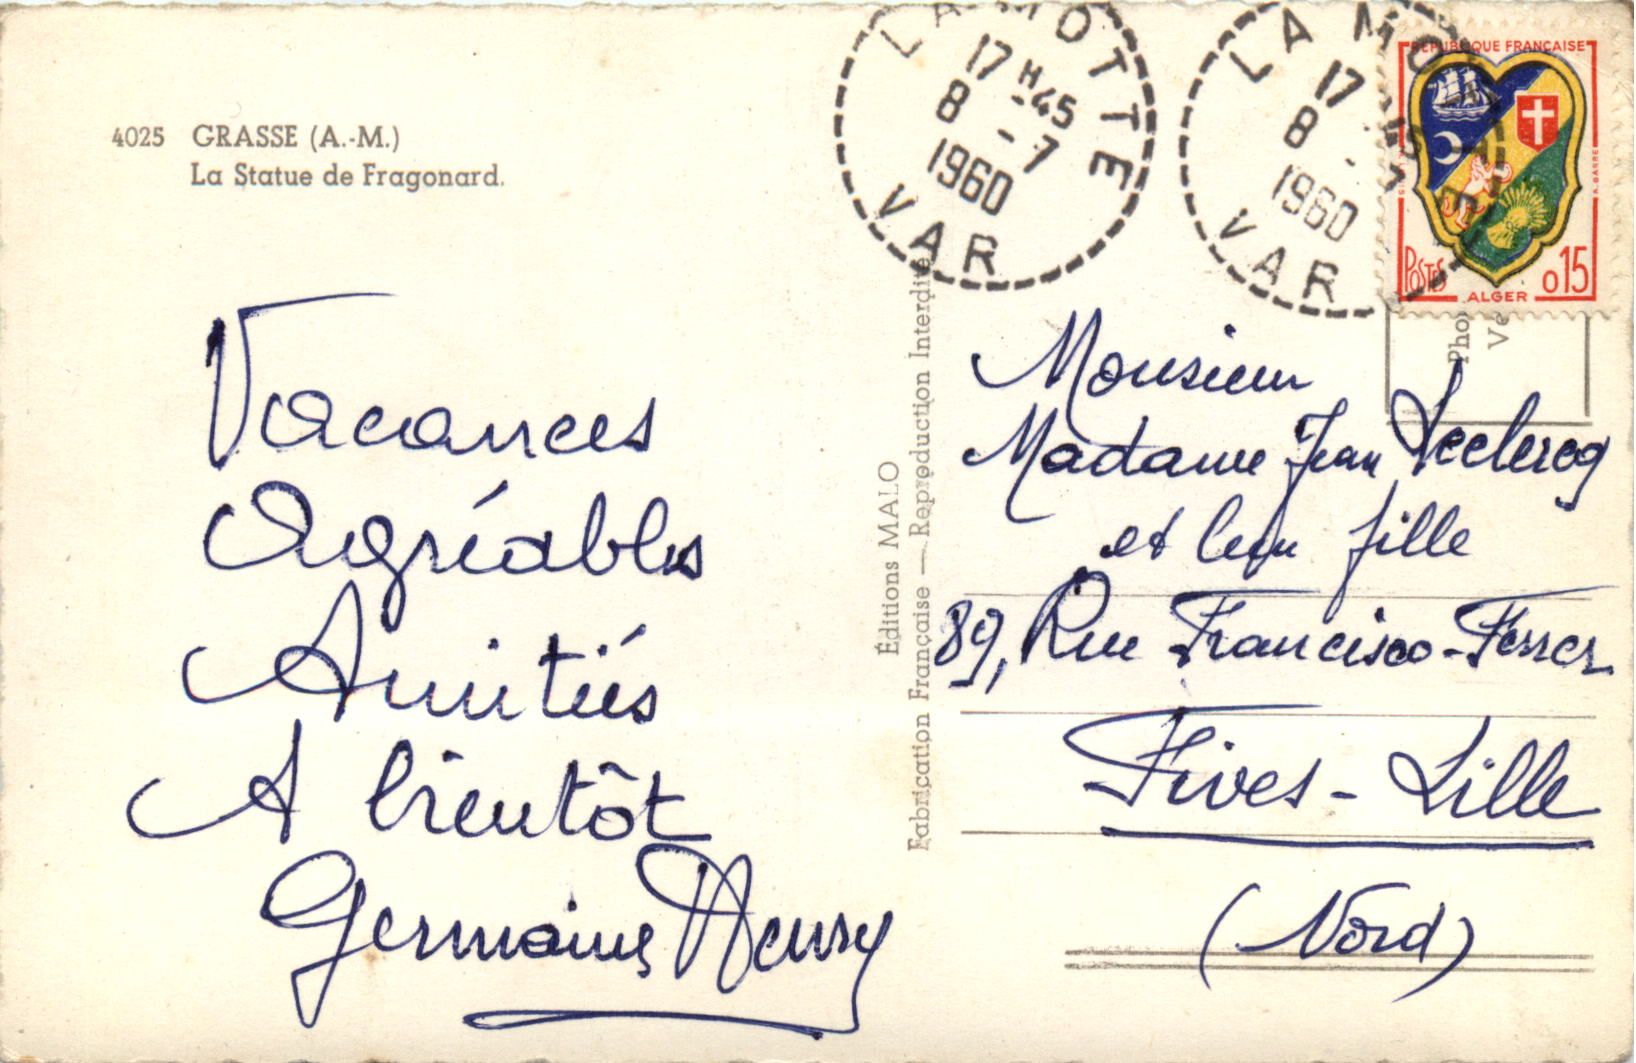 4025 GRASSE (A.-M.)
La Statue de Fragonard.
Vacances
Agréables
Amitiés
A bientôt
Germaine Henry
Éditions MALO
Fabrication Française — Reproduction Interdite
LA MOTTE
17 H 45
8 - 7
1960
VAR
LA MOTTE
17 H 45
8 - 7
1960
VAR
RÉPUBLIQUE FRANÇAISE
POSTES
ALGER
0,15
Pho
Ve
Monsieur
Madame Jean Leclercq
et leur fille
89, Rue Francisco-Ferrer
Fives-Lille
(Nord)